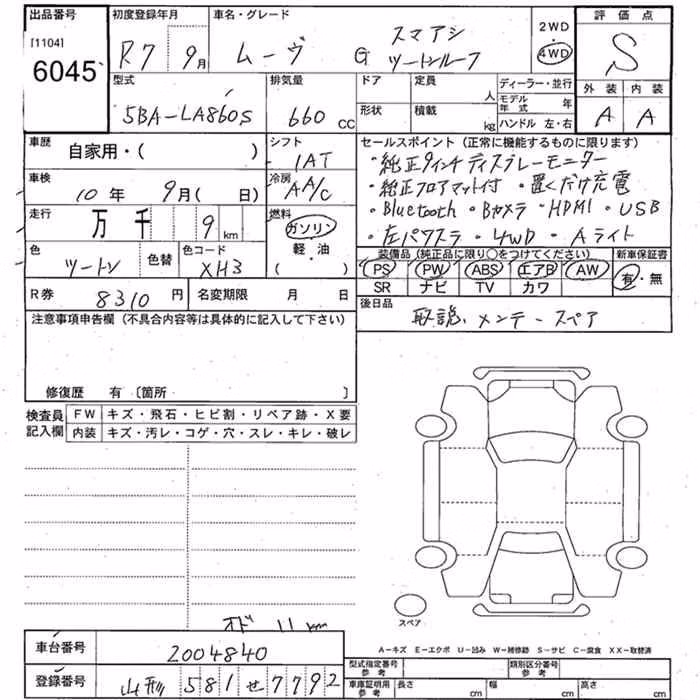 出品番号 初度登録年月 車名・グレード 2WD 評価点
[1104] スマアシ
6045 R7 9月 ムーヴ G ツートンルーフ 4WD S
型式 排気量 ドア 定員 人 ディーラー・並行 外装 内装
5BA-LA860S 660 cc 形状 積載 kg モデル年式 年 A A
ハンドル 左・右
車歴 自家用・( ) シフト 1AT セールスポイント (正常に機能するものに限ります)
車検 10年 9月( 日) 冷房 AA/C ・純正9インチディスプレーモニター
・純正フロアマット付 ・置くだけ充電
走行 万 千 9 km 燃料 ガソリン ・Bluetooth ・Bカメラ ・HDMI ・USB
軽・油 ・左パワスラ ・4WD ・Aライト
( )
色 ツートン 色替 色コード XH3 装備品 (純正品に限り○をつけてください) 新車保証書
PS PW ABS エアB AW 有・無
R券 8310円 名変期限 月 日 SR ナビ TV カワ
注意事項申告欄 (不具合内容等は具体的に記入して下さい) 後日品
取説、メンテ-スペア
修復歴 有 〔箇所 〕
検査員 FW キズ・飛石・ヒビ割・リペア跡・X要
記入欄 内装 キズ・汚レ・コゲ・穴・スレ・キレ・破レ
スペア
オド 11 km
A-キズ E-エクボ U-凹み W-補修跡 S-サビ C-腐食 XX-取替済
車台番号 2004840
型式指定番号 参考 類別区分番号 参考
登録番号 山形 581 せ 7792
車庫証明用 参考 長さ cm 幅 cm 高さ cm